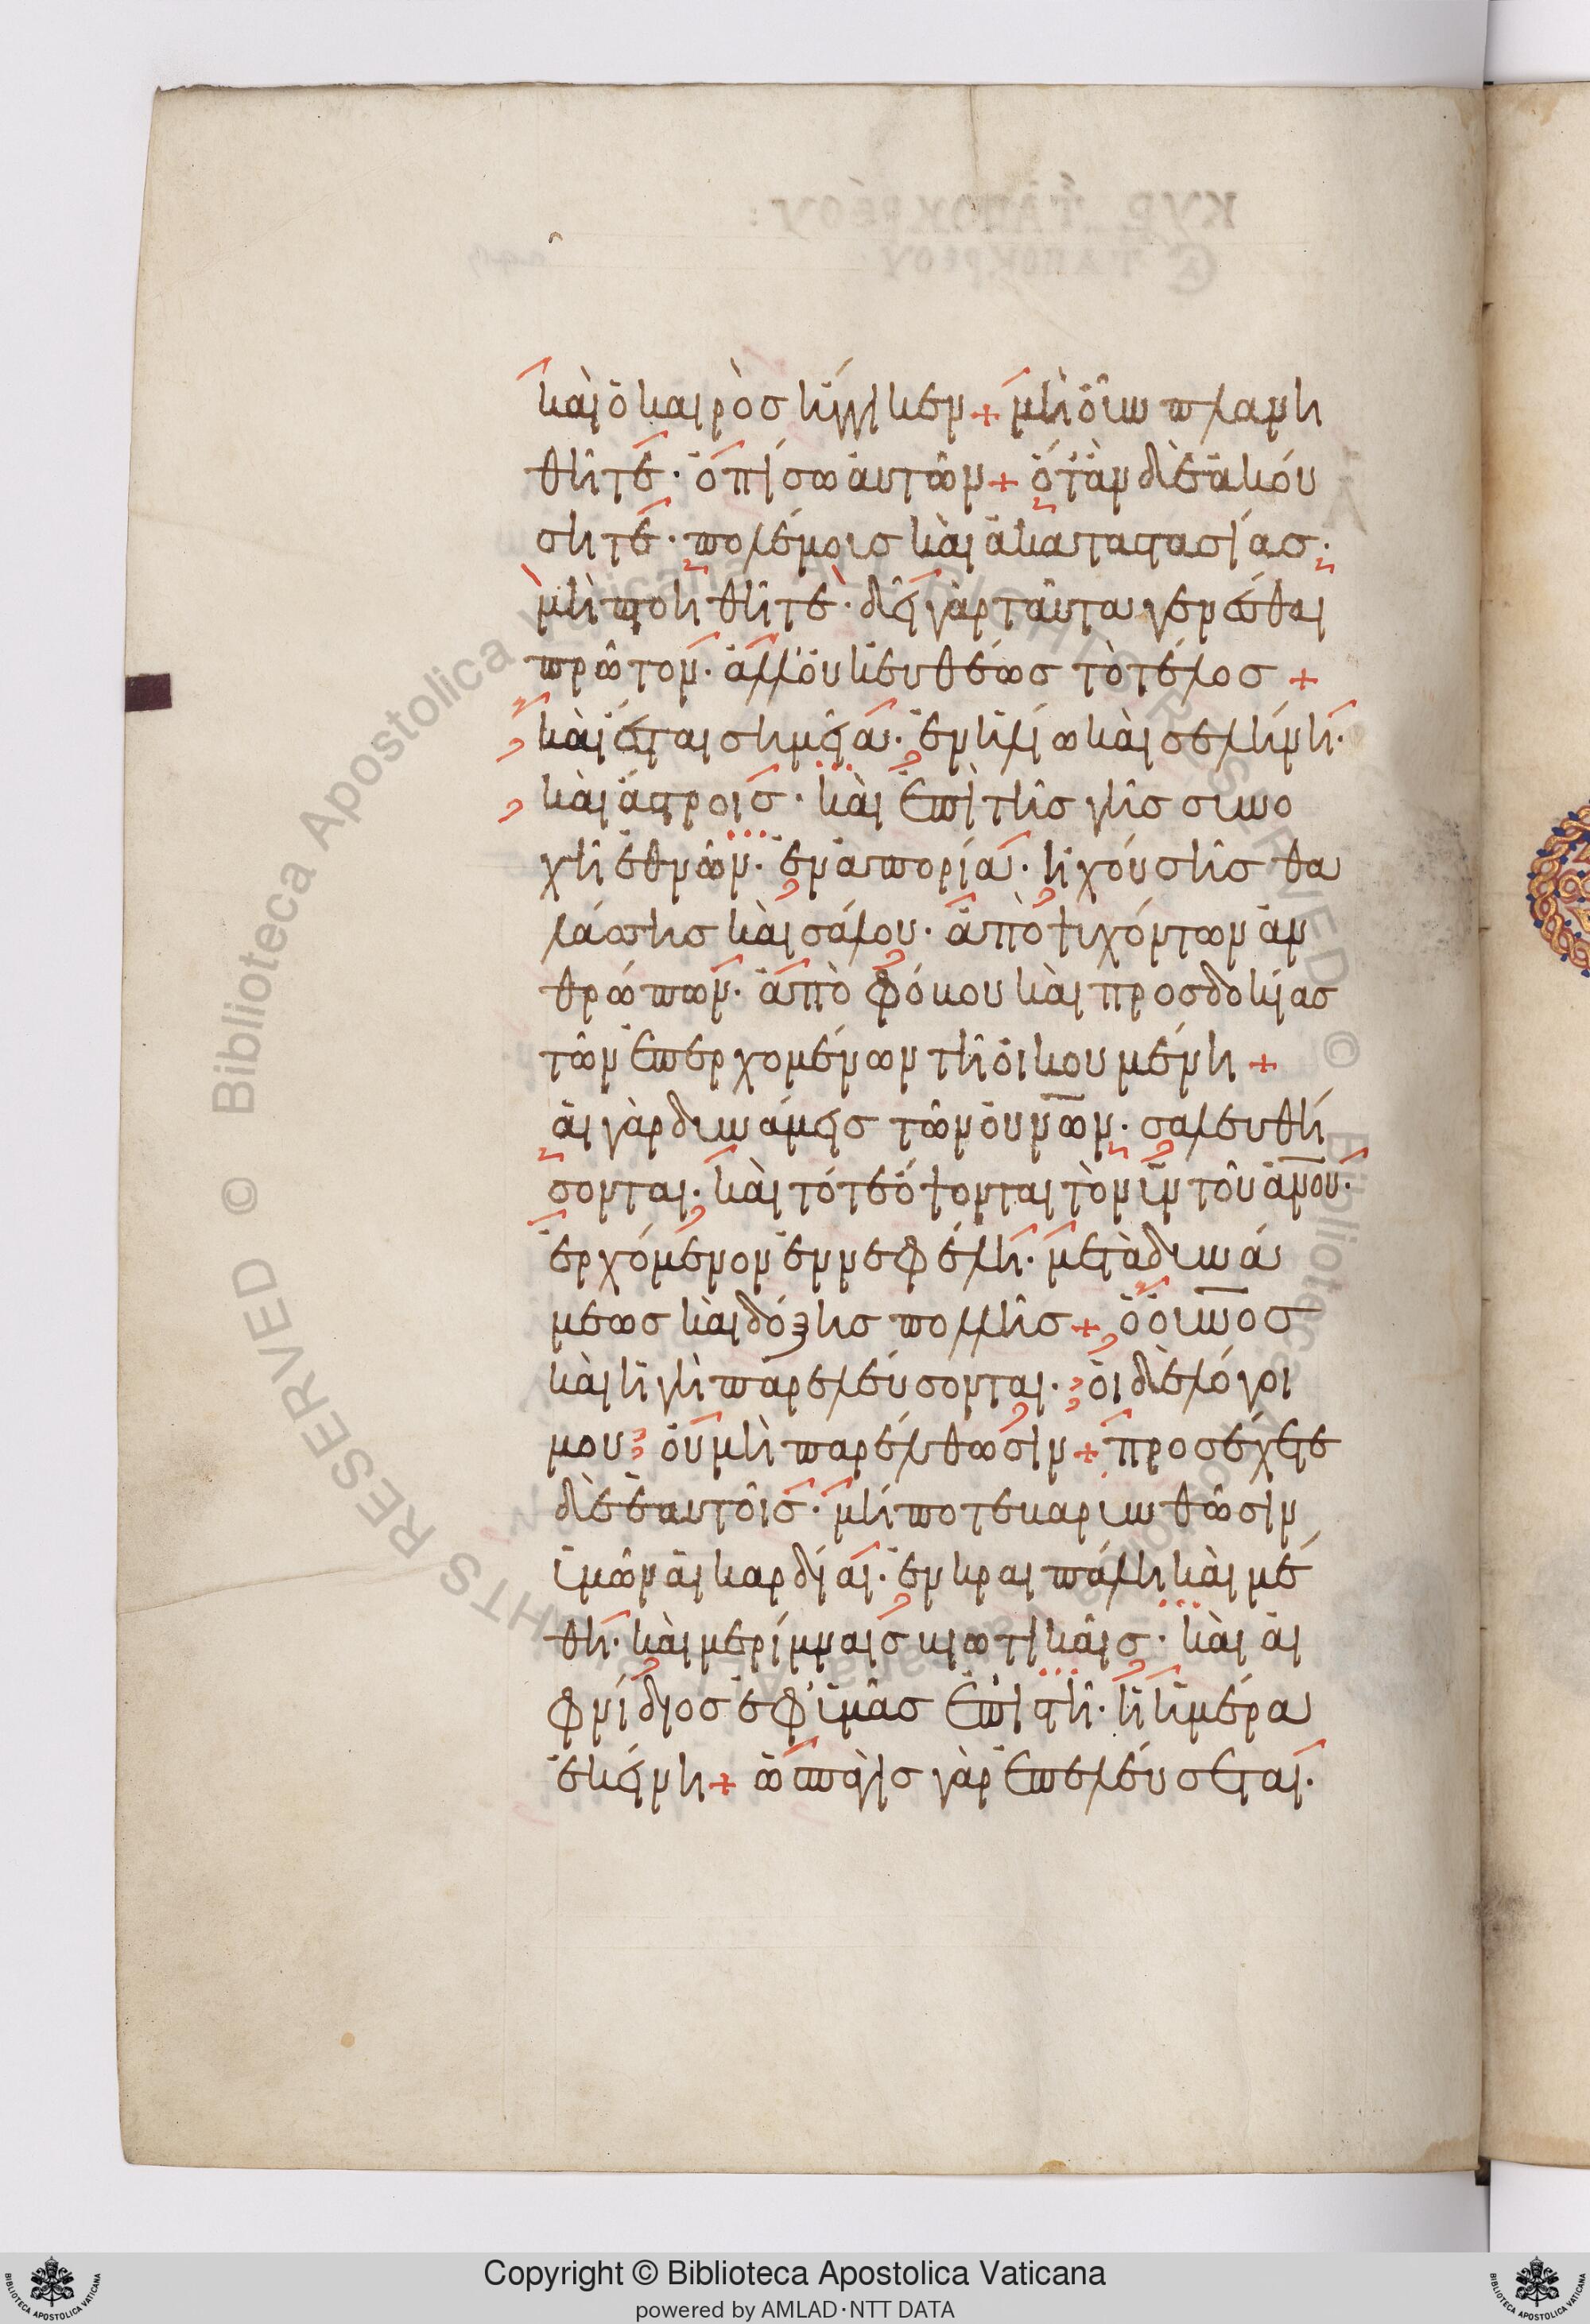 καὶ ὁ καιρὸς ἤγγικεν + μὴ οὖν πλανη
θῆτε · ὀπίσω αὐτῶν + ὅταν δὲ ἀκού
σητε · πολέμους καὶ ἀκαταστασίας ·
μὴ πτοηθῆτε · δεῖ γὰρ ταῦτα γενέσθαι
πρῶτον · ἀλλ' οὐκ εὐθέως τὸ τέλος +
καὶ ἔσται σημεῖα · ἐν ἡλίω καὶ σελήνη ·
καὶ ἄστροις · καὶ ἐπὶ τῆς γῆς συνο
χὴ ἐθνῶν · ἐν ἀπορία · ἠχούσης θα
λάσσης καὶ σάλου · ἀποψυχόντων ἀν
θρώπων · ἀπὸ φόβου καὶ προσδοκίας
τῶν ἐπερχομένων τῆ οἰκουμένη +
αἱ γὰρ δυνάμεις τῶν οὐνῶν · σαλευθή
σονται · καὶ τότε ὄψονται τὸν υἱν τοῦ ἀνου ·
ἐρχόμενον ἐν νεφέλη · μετὰ δυνά
μεως καὶ δόξης πολλῆς + ὁ οὐνος
καὶ ἡ γῆ παρελεύσονται · οἱ δὲ λόγοι
μου οὐ μὴ παρέλθωσιν + προσέχετε
δὲ ἑαυτοῖς · μήποτε βαρυνθῶσιν
ὑμῶν αἱ καρδίαι · ἐν κραιπάλη καὶ μέ
θη · καὶ μερίμναις βιωτικαῖς · καὶ αἰ
φνίδιος ἐφ' ὑμᾶς ἐπιστῆ · ἡ ἡμέρα
ἐκείνη + ὡς παγὶς γὰρ ἐπελεύσεται ·
© Biblioteca Apostolica Vaticana ALL RIGHTS RESERVED
Copyright © Biblioteca Apostolica Vaticana
powered by AMLAD·NTT DATA